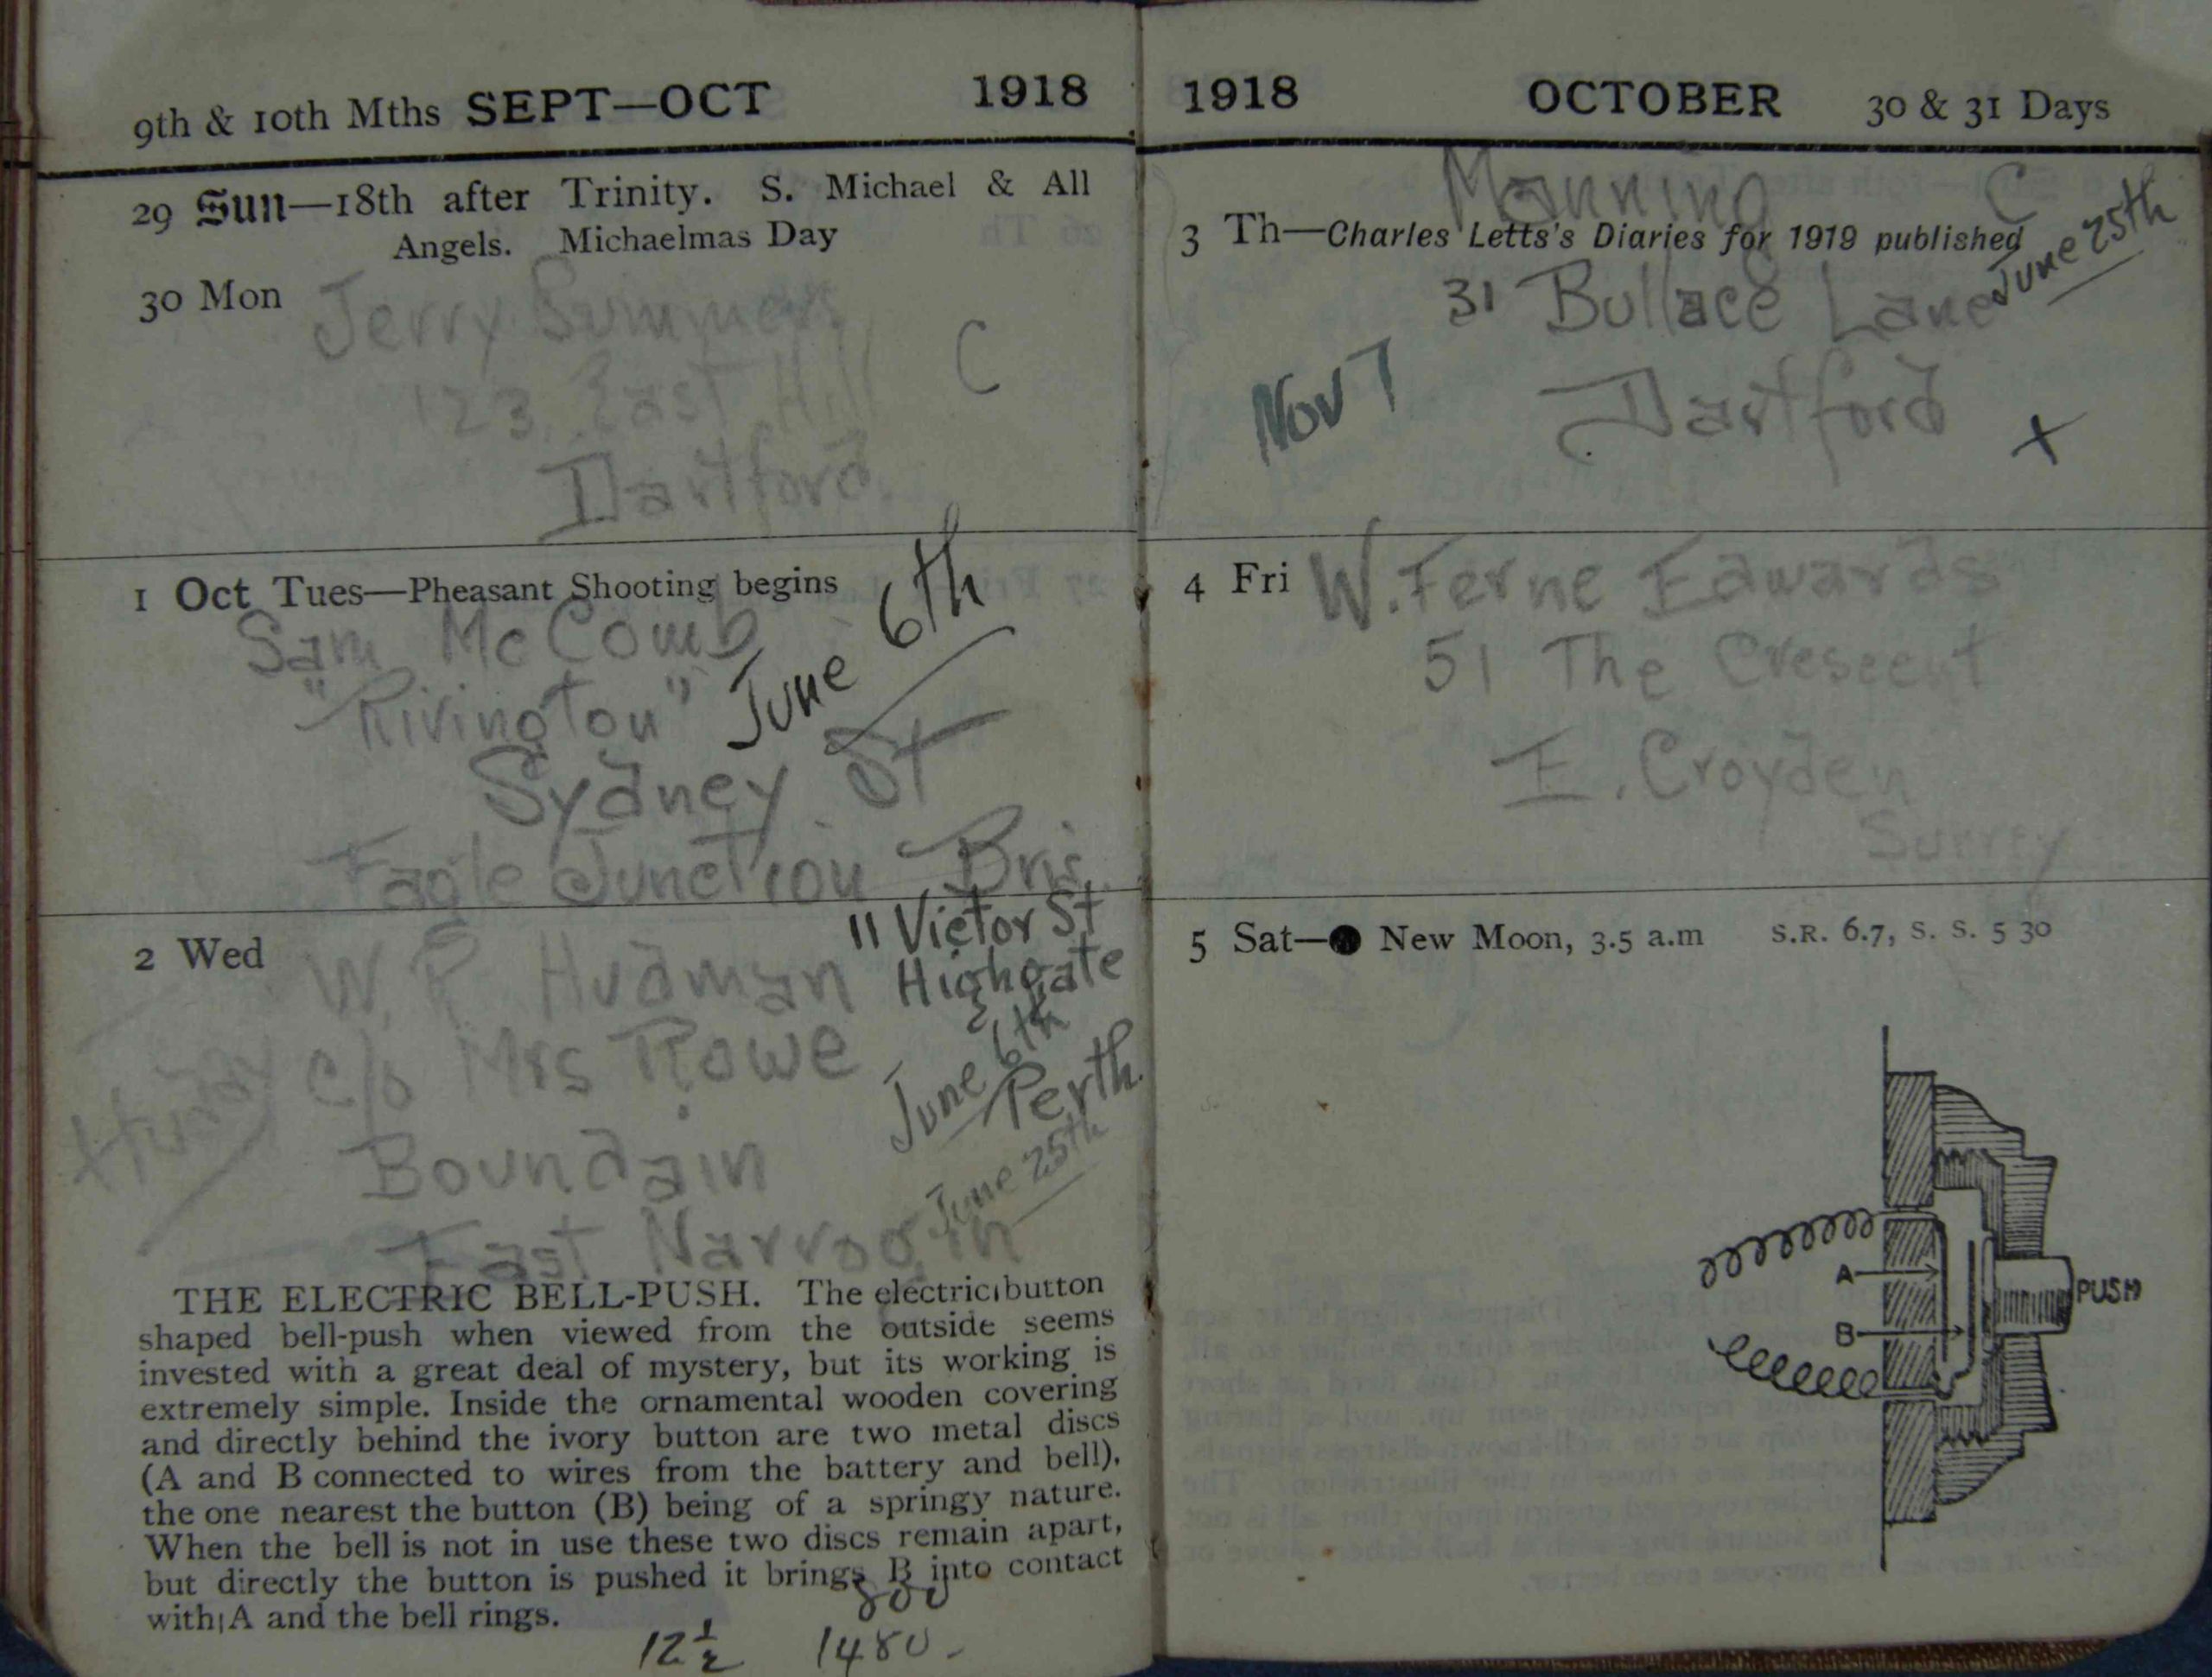 9th & 10th Mths SEPT—OCT 1918
29 Sun—18th after Trinity. S. Michael & All
Angels. Michaelmas Day
30 Mon
Jerry Summers
123 East Hill C
Dartford.
1 Oct Tues—Pheasant Shooting begins
Sam McComb
"Rivington" June 6th
Sydney St
Eagle Junction Bris.
2 Wed
W. P. Hudman
11 Victor St
Highgate
June 6th
Perth.
c/o Mrs Rowe
Boundain
June 25th
East Narrogin
THE ELECTRIC BELL-PUSH. The electric button
shaped bell-push when viewed from the outside seems
invested with a great deal of mystery, but its working is
extremely simple. Inside the ornamental wooden covering
and directly behind the ivory button are two metal discs
(A and B connected to wires from the battery and bell),
the one nearest the button (B) being of a springy nature.
When the bell is not in use these two discs remain apart,
but directly the button is pushed it brings B into contact
with A and the bell rings.
800
12½ 1480-
1918 OCTOBER 30 & 31 Days
Manning C
3 Th—Charles Letts's Diaries for 1919 published
June 25th
31 Bullace Lane
Nov 7
Dartford
X
4 Fri
W. Ferne Edwards
51 The Crescent
E. Croyden
Surrey
5 Sat—● New Moon, 3.5 a.m S.R. 6.7, S. S. 5 30
A
PUSH
B